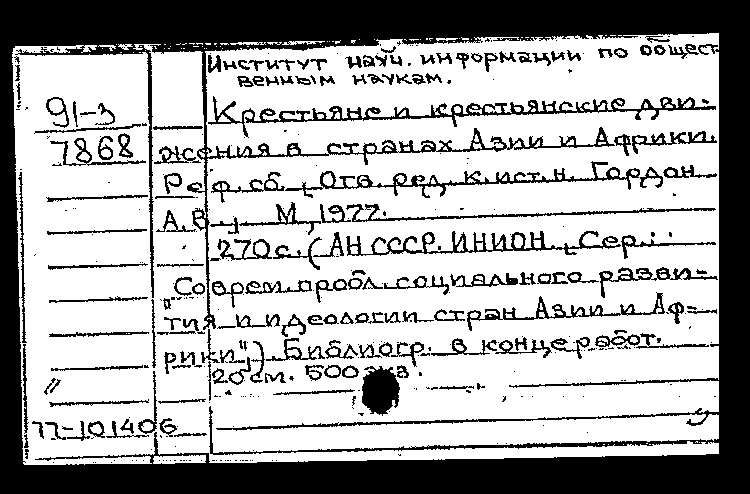 Институт науч. информации по общест
венным наукам.
91-3
Крестьяне и крестьянские дви-
7868
жения в странах Азии и Африки.
Реф. сб. [Отв. ред. к.ист.н. Гордон
А.В.]. М, 1977.
270 с. (АН СССР. ИНИОН. [Сер.:
"Соврем. пробл. социального разви-
тия и идеологии стран Азии и Аф-
рики"]). Библиогр. в конце работ.
20 см. 500 экз.
77-101406